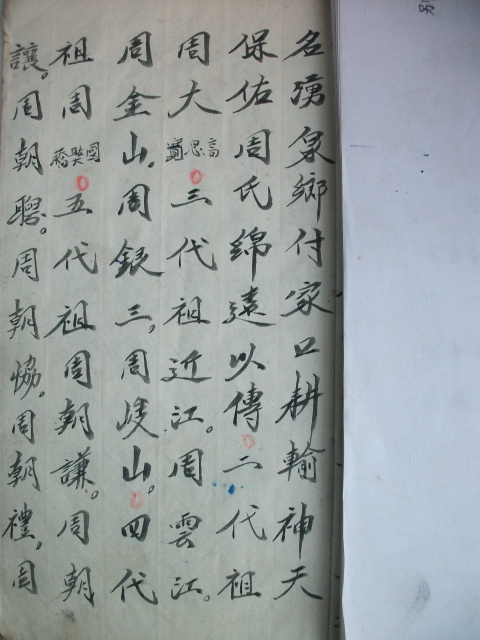 名湧泉鄉付家口耕輸神天
保佑周氏綿遠以傳二代祖
周大高思過三代祖近江。周雲江。
周金山。周銀三。周峻山。四代
祖周國賢喬五代祖周朝謙。周朝
讓。周朝聖。周朝協。周朝禮。周